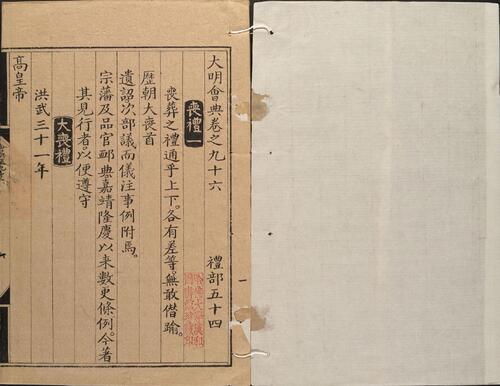 大明會典卷之九十六 禮部五十四
喪禮一
喪葬之禮通乎上下。各有差等。無敢僭踰。
歷朝大喪首
遺詔次部議而儀注事例附焉。
宗藩及品官卹典嘉靖隆慶以來數更條例。今著
其見行者以便遵守
大喪禮
洪武三十一年
高皇帝
一